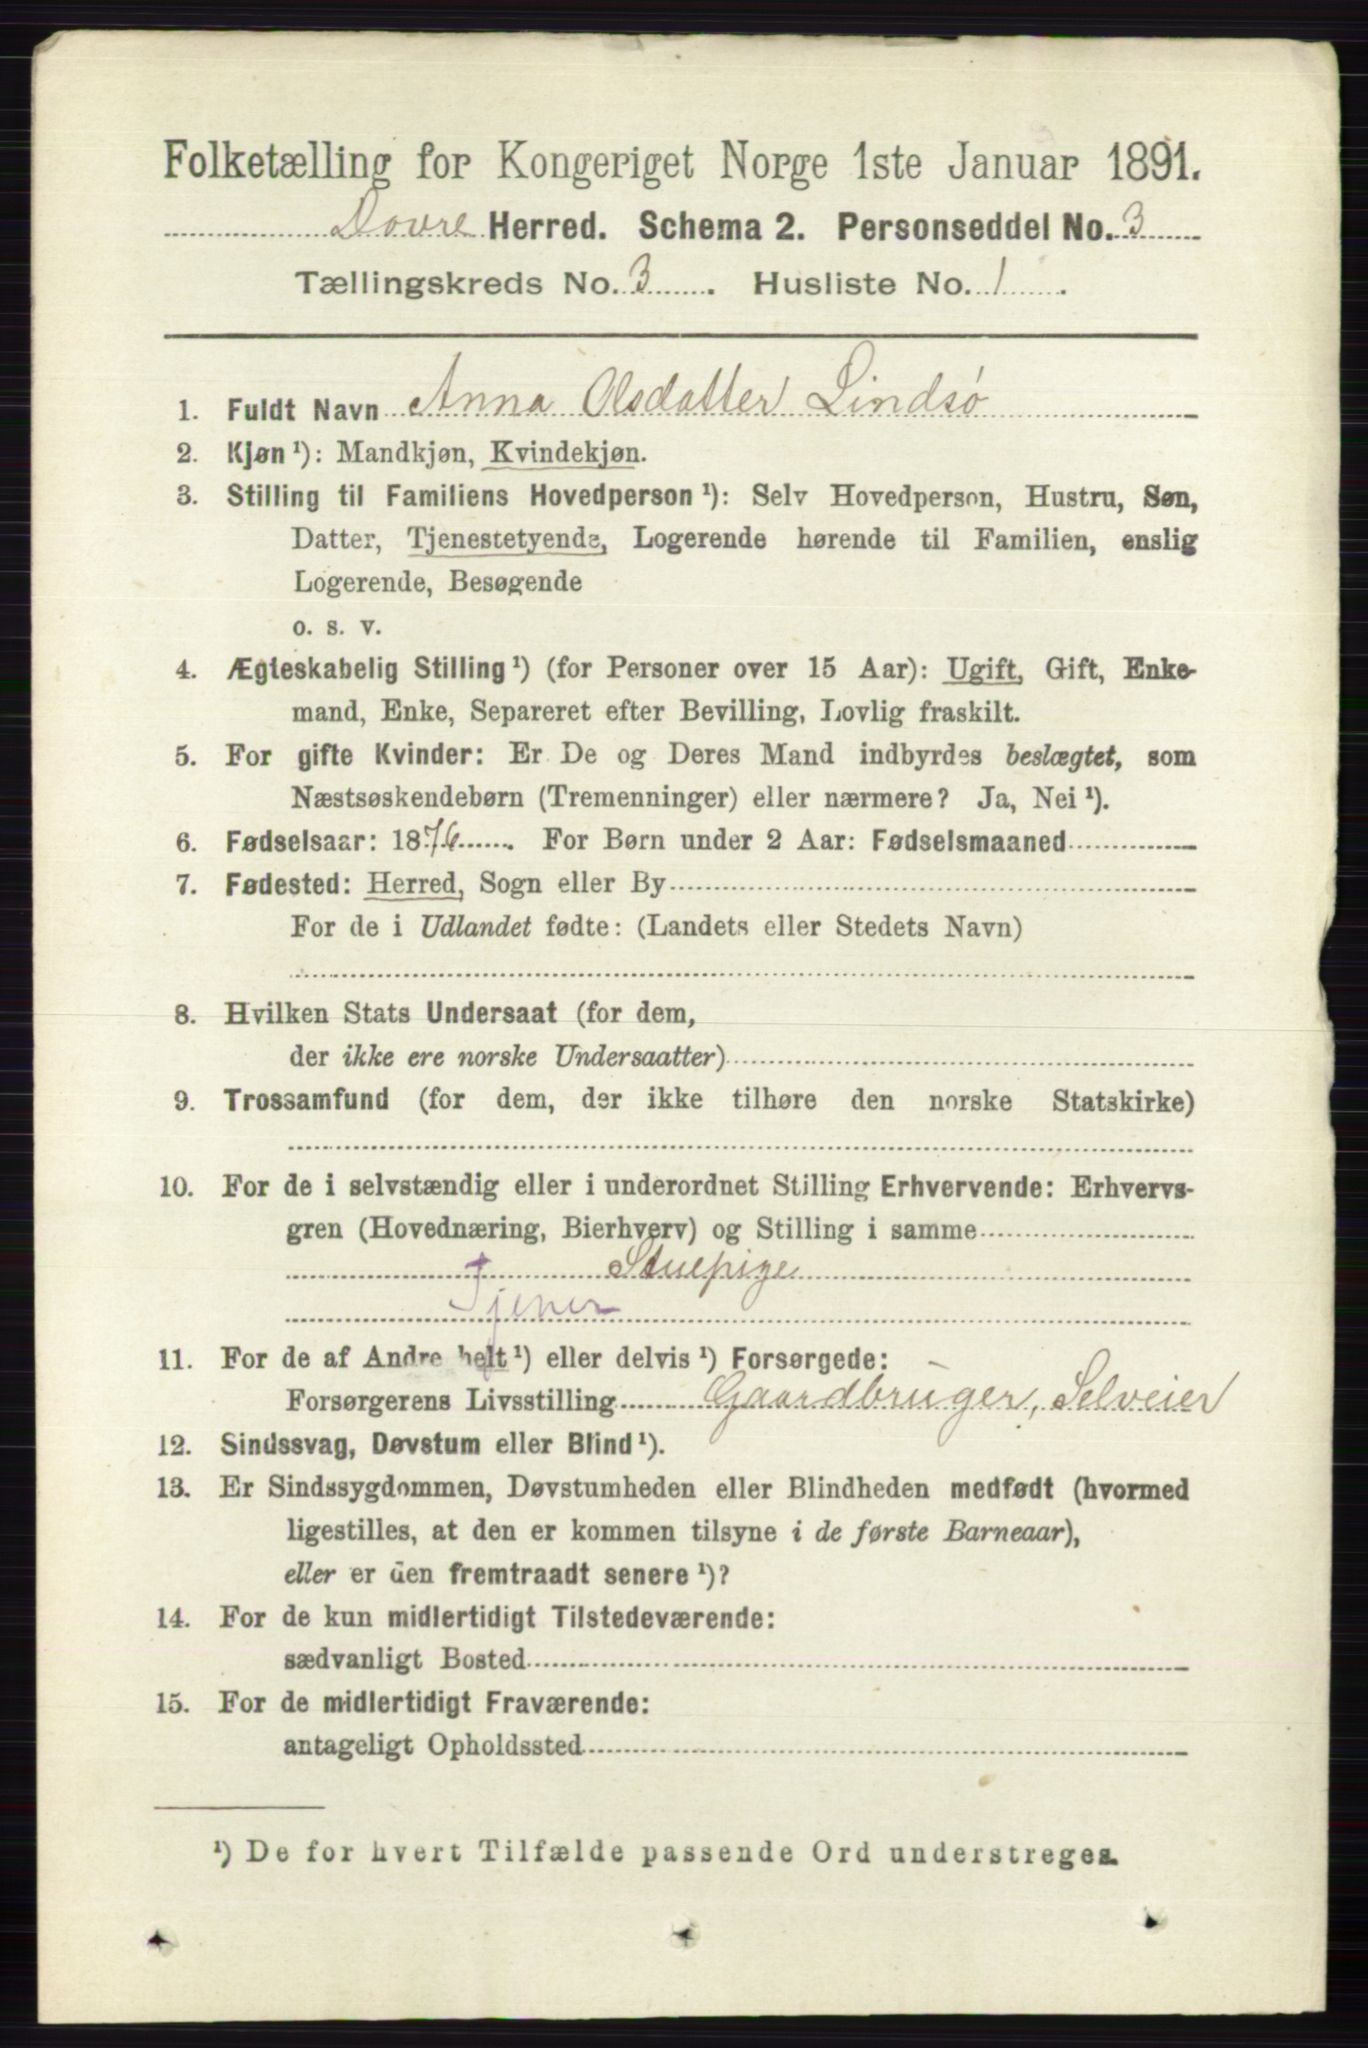 Folketælling for Kongeriget Norge 1ste Januar 1891.
Dovre Herred. Schema 2. Personseddel No. 3
Tællingskreds No. 3. Husliste No. 1.
1. Fuldt Navn Anna Olsdatter Lindsø
2. Kjøn ¹): Mandkjøn, Kvindekjøn.
3. Stilling til Familiens Hovedperson ¹): Selv Hovedperson, Hustru, Søn,
Datter, Tjenestetyende, Logerende hørende til Familien, enslig
Logerende, Besøgende
o. s. v.
4. Ægteskabelig Stilling ¹) (for Personer over 15 Aar): Ugift, Gift, Enke-
mand, Enke, Separeret efter Bevilling, Lovlig fraskilt.
5. For gifte Kvinder: Er De og Deres Mand indbyrdes beslægtet, som
Næstsøskendebørn (Tremenninger) eller nærmere? Ja, Nei ¹).
6. Fødselsaar: 1876. For Børn under 2 Aar: Fødselsmaaned
7. Fødested: Herred, Sogn eller By
For de i Udlandet fødte: (Landets eller Stedets Navn)
8. Hvilken Stats Undersaat (for dem,
der ikke ere norske Undersaatter)
9. Trossamfund (for dem, der ikke tilhøre den norske Statskirke)
10. For de i selvstændig eller i underordnet Stilling Erhvervende: Erhvervs-
gren (Hovednæring, Bierhverv) og Stilling i samme
Stuepige
Tjener
11. For de af Andre helt ¹) eller delvis ¹) Forsørgede:
Forsørgerens Livsstilling Gaardbruger, Selveier
12. Sindssvag, Døvstum eller Blind ¹).
13. Er Sindssygdommen, Døvstumheden eller Blindheden medfødt (hvormed
ligestilles, at den er kommen tilsyne i de første Barneaar),
eller er den fremtraadt senere ¹)?
14. For de kun midlertidigt Tilstedeværende:
sædvanligt Bosted
15. For de midlertidigt Fraværende:
antageligt Opholdssted
¹) De for hvert Tilfælde passende Ord understreges.